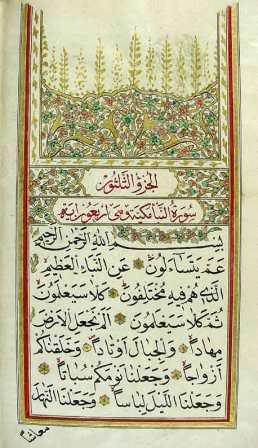 الجزؤ الثلثون
سورة النبا مكية وهي اربعون اية
بِسْمِ اللهِ الرَّحْمٰنِ الرَّحِيمِ
عَمَّ يَتَسَاءَلُونَ عَنِ النَّبَاءِ الْعَظِيمِ
الَّذِي هُمْ فِيهِ مُخْتَلِفُونَ كَلَّا سَيَعْلَمُونَ
ثُمَّ كَلَّا سَيَعْلَمُونَ اَلَمْ نَجْعَلِ الْاَرْضَ
مِهَادًا وَالْجِبَالَ اَوْتَادًا وَخَلَقْنَاكُمْ
اَزْوَاجًا وَجَعَلْنَا نَوْمَكُمْ سُبَاتًا
وَجَعَلْنَا اللَّيْلَ لِبَاسًا وَجَعَلْنَا النَّهَارَ
معاشا